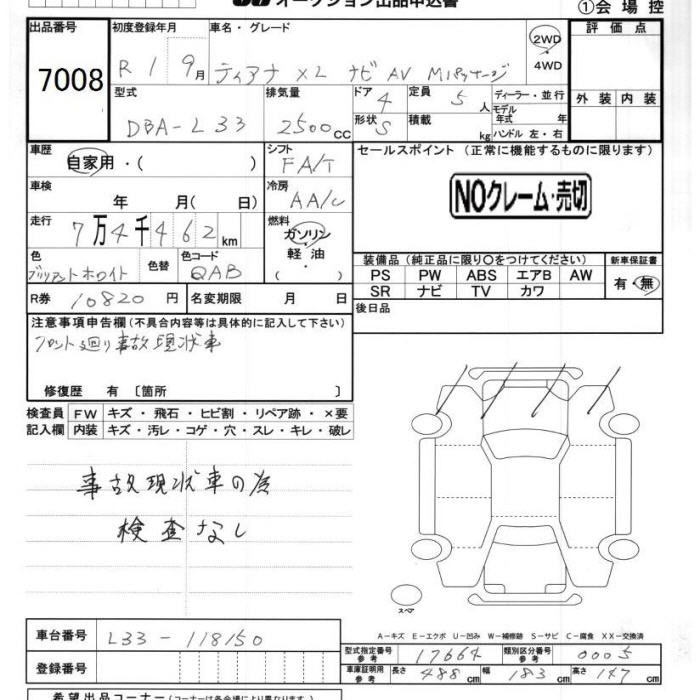 オークション出品申込書
①会場控
出品番号
7008
初度登録年月
R1 9月
車名・グレード
ティアナ XL ナビAV Mパッケージ
2WD
・4WD
評価点
外装 内装
型式
DBA-L33
排気量
2500cc
ドア 4
形状 S
定員 5人
積載 kg
ディーラー・並行
モデル
年式 年
ハンドル 左・右
車歴
自家用・( )
シフト
FA/T
セールスポイント (正常に機能するものに限ります)
NOクレーム・売切
車検
年 月( 日)
冷房
AA/C
走行
7万4千462km
燃料
ガソリン
・軽油・
( )
色
ブリリアントホワイト
色替
色コード
QAB
装備品 (純正品に限り○をつけてください)
PS PW ABS エアB AW
SR ナビ TV カワ
新車保証書
有・無
R券 10820円
名変期限 月 日
後日品
注意事項申告欄(不具合内容等は具体的に記入して下さい)
フロント廻り事故現状車
修復歴 有 〔箇所 〕
検査員
記入欄
FW キズ・飛石・ヒビ割・リペア跡・×要
内装 キズ・汚レ・コゲ・穴・スレ・キレ・破レ
事故現状車の為
検査なし
スペア
A-キズ E-エクボ U-凹み W-補修跡 S-サビ C-腐食 XX-交換済
車台番号 L33-118150
登録番号
型式指定番号
参考
17664
類別区分番号
参考
0005
車庫証明用
参考
長さ 488cm 幅 183cm 高さ 147cm
希望出品コーナー(コーナーは各会場により異なります。)